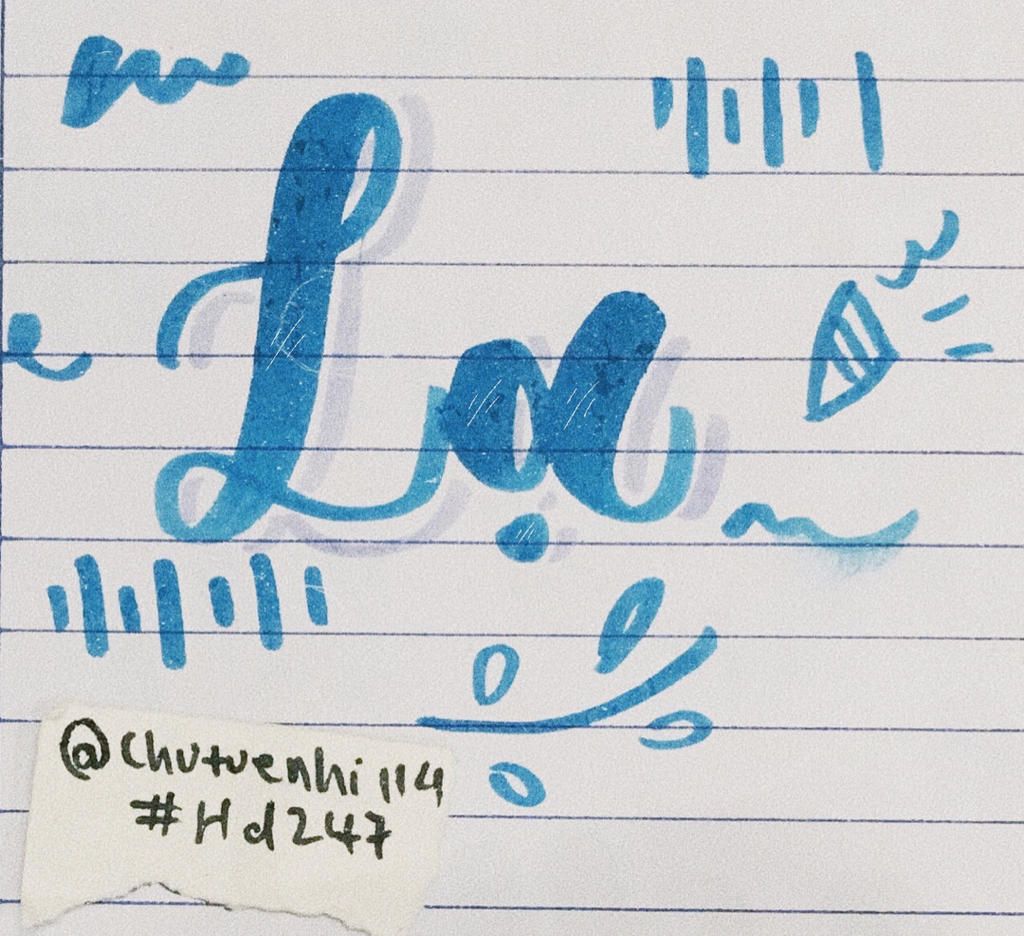 Lạ
@chutuenhi114
#Hd247